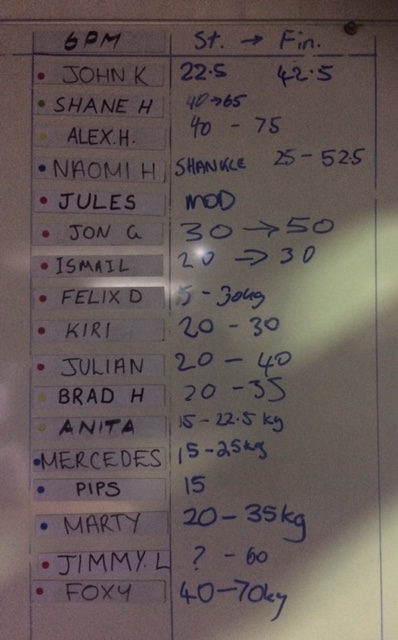 6PM St. → Fin.
JOHN K 22.5 42.5
SHANE H 40→65
ALEX.H. 40 - 75
NAOMI H SHANKLE 25 - 52.5
JULES MOD
JON G 30 → 50
ISMAIL 20 → 30
FELIX D 5 - 30kg
KIRI 20 - 30
JULIAN 20 - 40
BRAD H 20 - 35
ANITA 15 - 22.5 kg
MERCEDES 15 - 25kg
PIPS 15
MARTY 20 - 35kg
JIMMY.L ? - 60
FOXY 40 - 70kg